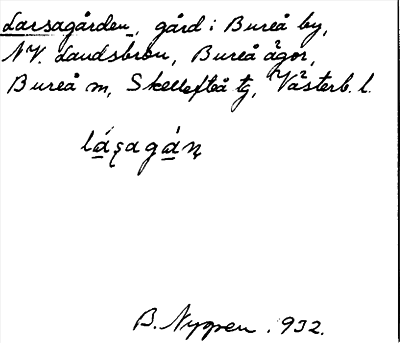 Larsagården, gård i Bureå by,
NV. Landsbron, Bureå ägor,
Bureå m, Skellefteå tg, Västerb. l.
lásagán
B. Nygren. 1932.